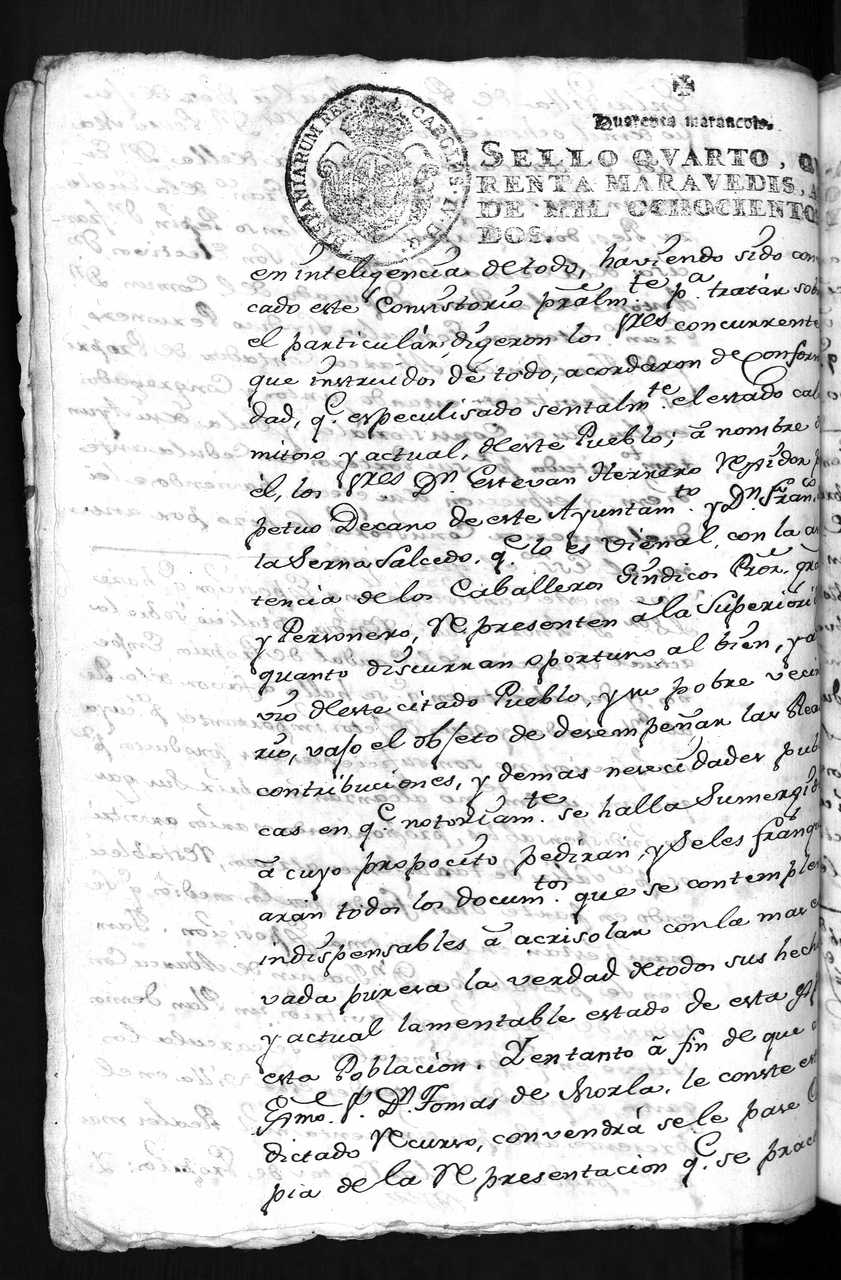 HISPANIARUM REX. CAROLUS IV D. G.
Quarenta maravedis.
SELLO QVARTO, QV
RENTA MARAVEDIS, A
DE MIL OCHOCIENTOS
DOS.
en inteligencia de todo, haviendo sido con
cado este Consistorio pralmte. pa. tratár sob
el particulár, digeron los Sres concurrente
que instruidos de todo, acordaron de Conform
dad, q.e especulisado sentalmte. el estado cal
mitoso y actual, deste Pueblo; á nombre d
él, los Sres Dn. Estevan Herrero Rexidor p
petuo Decano de este Ayuntamto. y Dn. Franco
la Serna Salcedo, q.e lo es vienal, con la a
tencia de los Caballeros Síndicos Prór. gra
y Personero, Representen á la Superiori
quanto discurran oportuno al bien, y a
vio deste citado Pueblo, y su pobre veci
rio, vajo el obgeto de desempeñar las Rea
contribuciones, y demas nececidades pub
cas en q.e notoriamte. se halla Sumergid
á cuyo propocito pedirán, y Seles franqu
arán todos los documtos. que se contemplen
indispensables á acrisolar con la mas e
vada puresa la verdad de todos sus hech
y actual lamentable estado de esta
esta Poblacion. Y en tanto á fin de que a
Exmo. Sr. Dn. Tomas de Morla, le conste es
dictado Recurso, convendrá se le pase C
pia de la Representacion q.e se pract